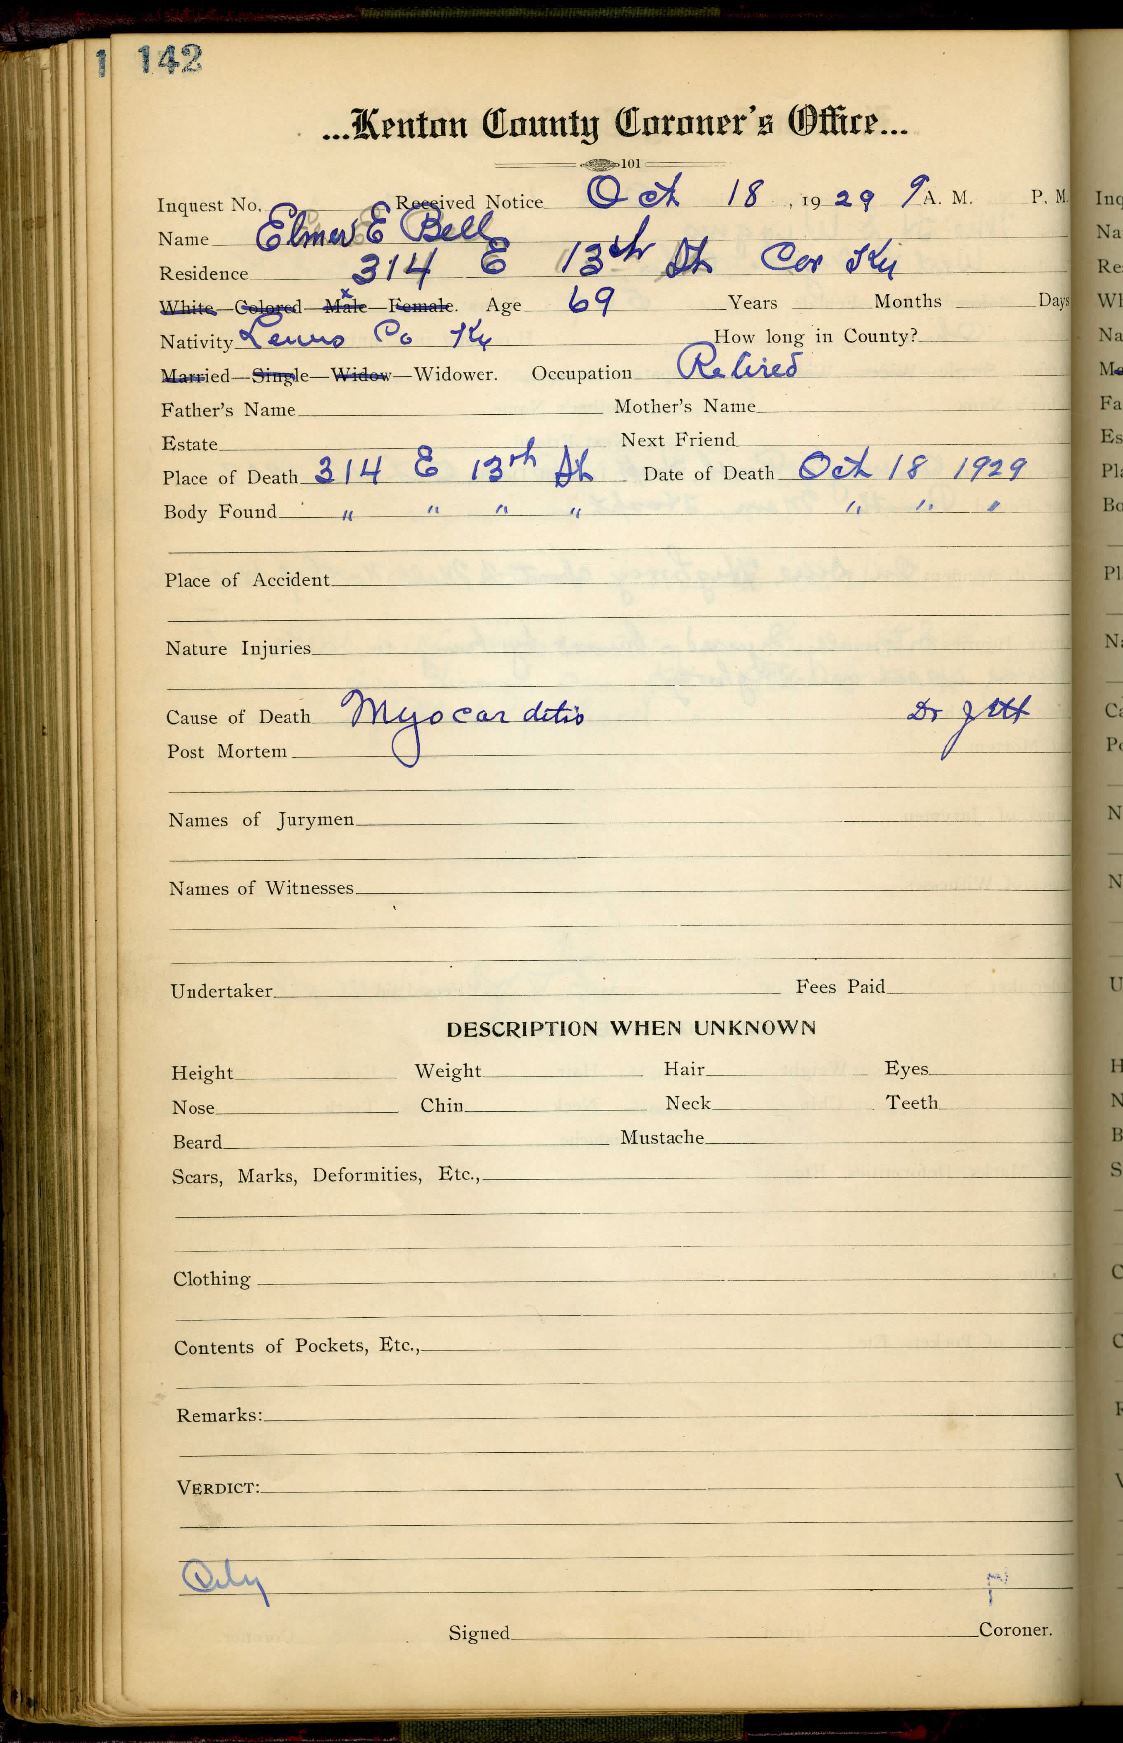 1 142
...Kenton County Coroner's Office...
101
Inquest No. Received Notice Oct 18, 1929 9 A. M. P. M.
Name Elmer E Bell
Residence 314 E 13th St Cov Ky
White—Colored—Male—Female. x Age 69 Years Months Days
Nativity Lewis Co Ky How long in County?
Married—Single—Widow—Widower. Occupation Retired
Father's Name Mother's Name
Estate Next Friend
Place of Death 314 E 13th St Date of Death Oct 18 1929
Body Found " " " " " " "
Place of Accident
Nature Injuries
Cause of Death Myocarditis Dr
Post Mortem
Names of Jurymen
Names of Witnesses
Undertaker Fees Paid
DESCRIPTION WHEN UNKNOWN
Height Weight Hair Eyes
Nose Chin Neck Teeth
Beard Mustache
Scars, Marks, Deformities, Etc.,
Clothing
Contents of Pockets, Etc.,
Remarks:
VERDICT:
City
Signed Coroner.